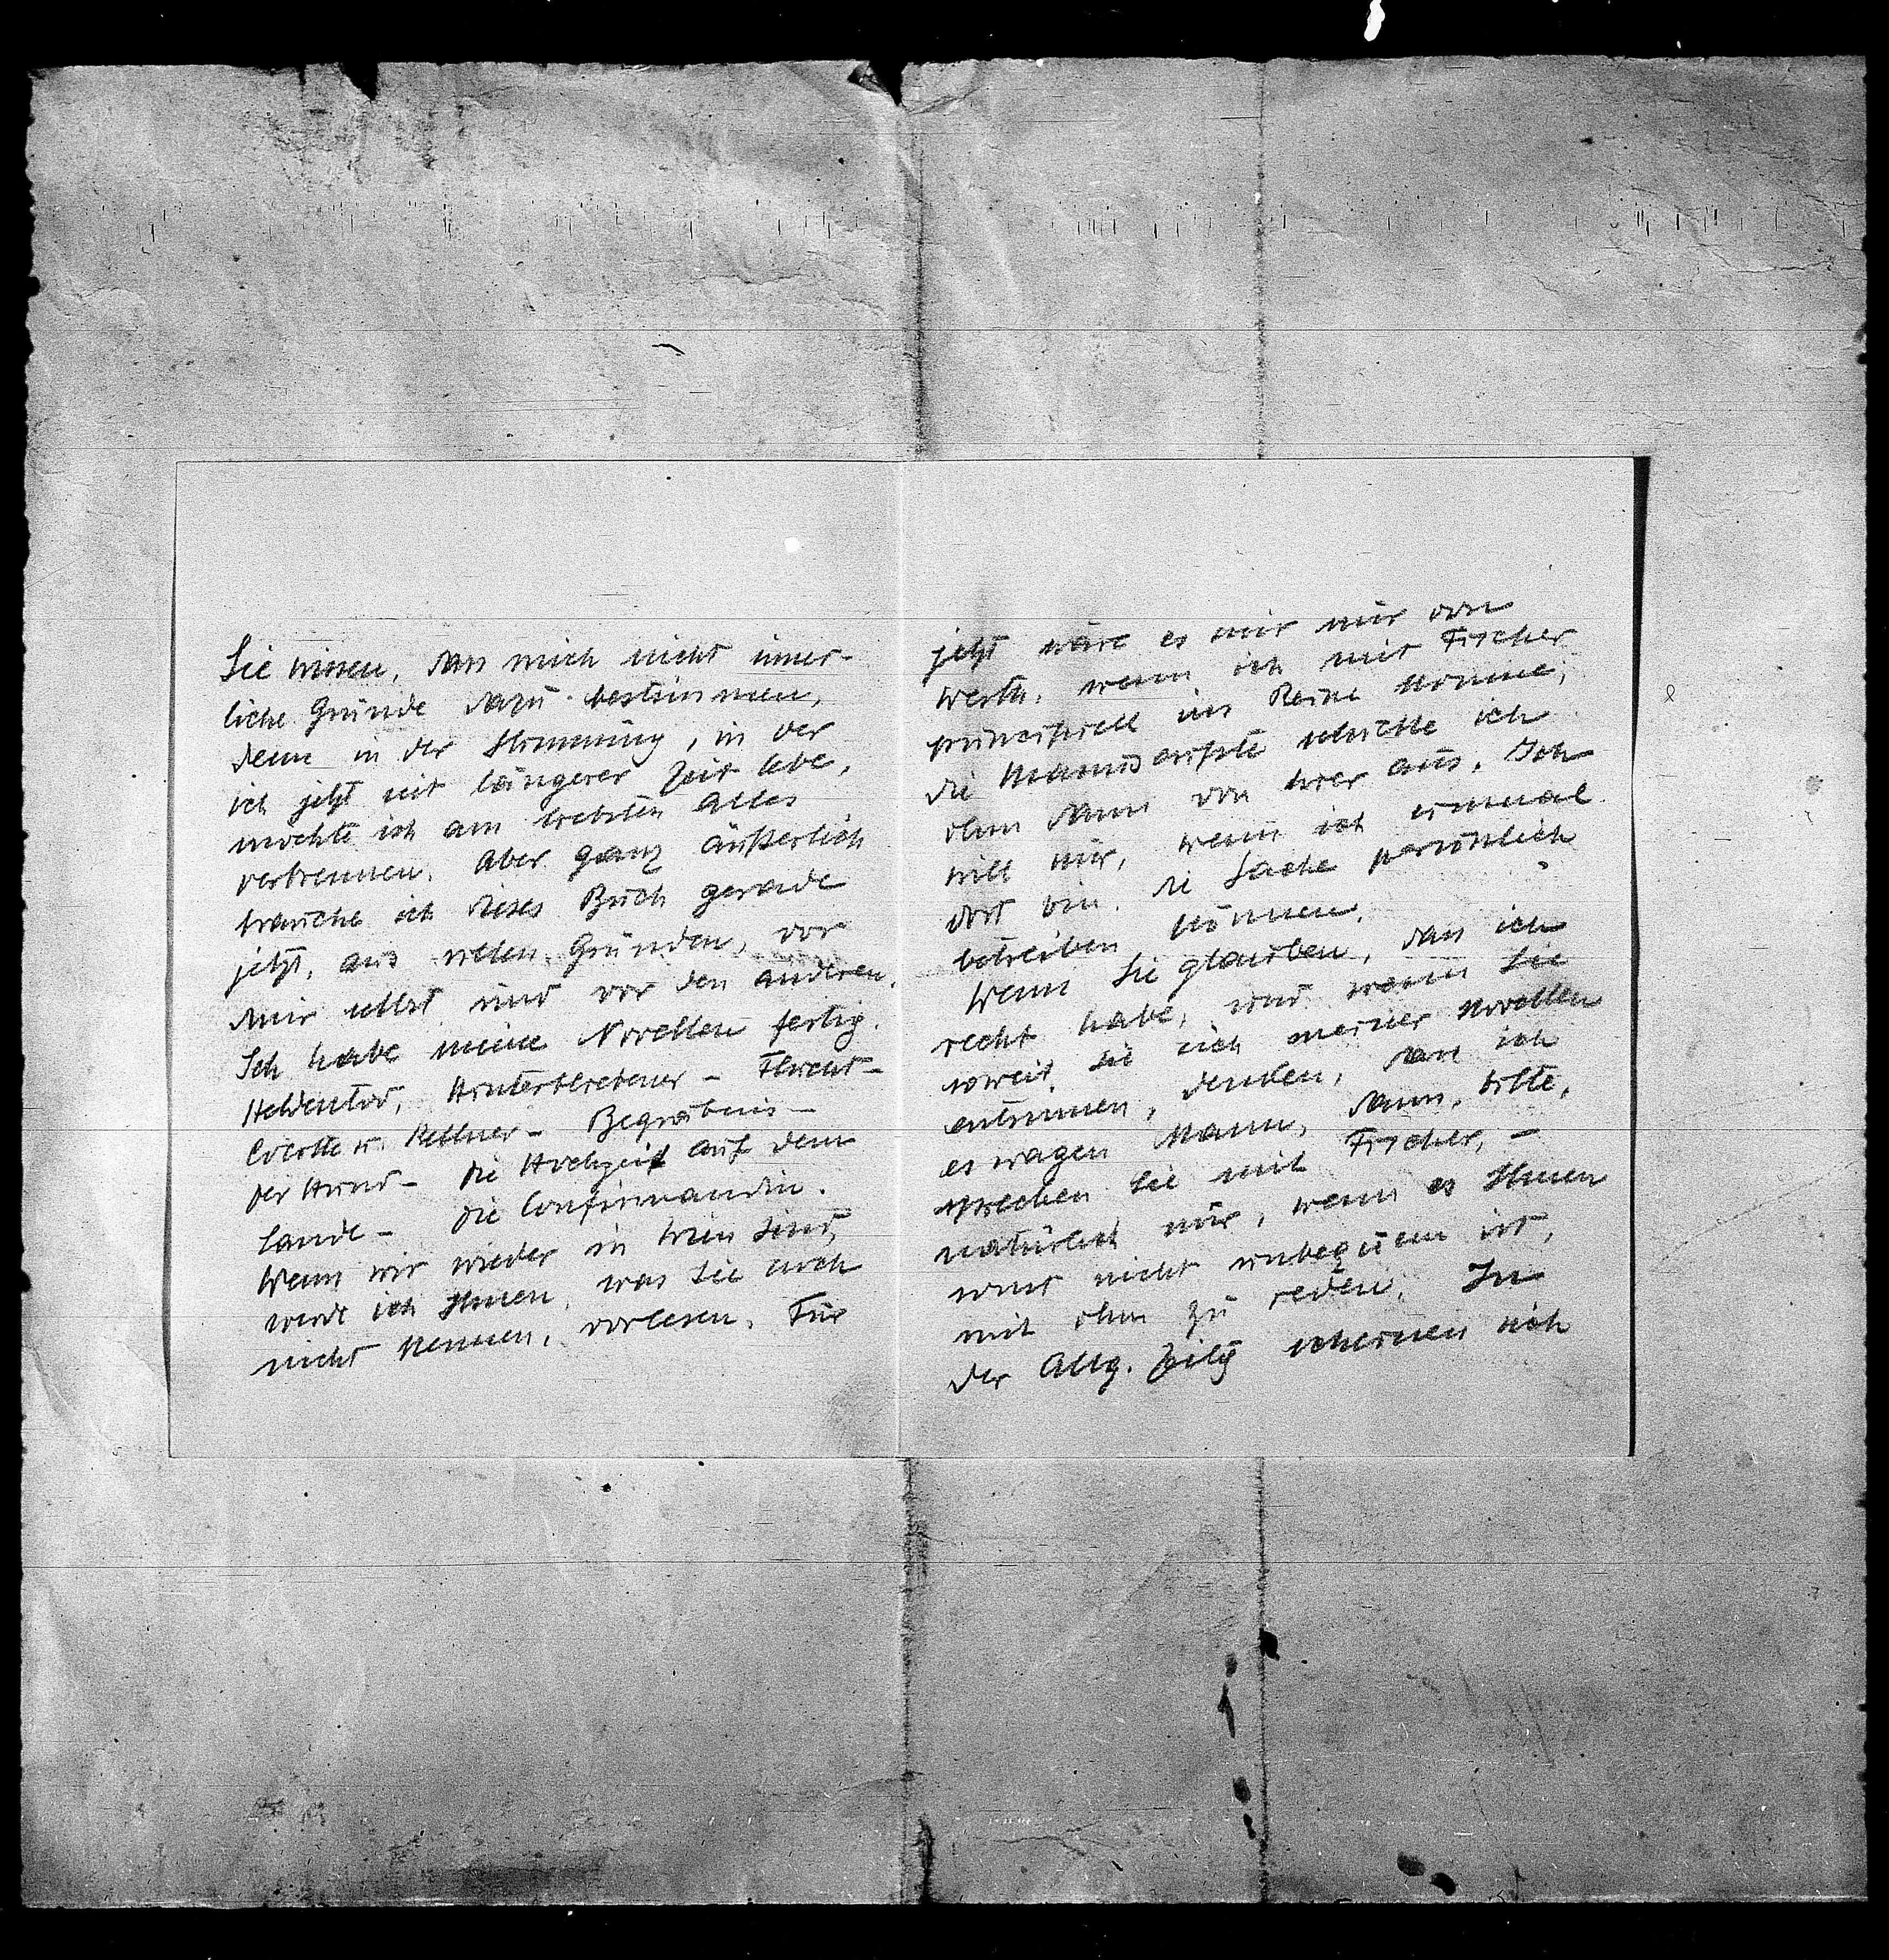 Sie wissen, dass mich nicht inner-
liche Gründe dazu bestimmen,
denn in der Stimmung, in der
ich jetzt seit längerer Zeit lebe,
möchte ich am liebsten alles
verbrennen. Aber ganz äußerlich
brauche ich dieses Buch gerade
jetzt, aus vielen Gründen, vor
mir selbst und vor den anderen.
Ich habe meine Novellen fertig.
Heldentod, Hinterbliebener – Flucht –
Cocotte u. Kellner – Begräbnis –
Der Hund – Die Hochzeit auf dem
Lande – Die Confirmandin.
Wenn wir wieder in Wien sind,
werde ich Ihnen, was Sie noch
nicht kennen, vorlesen. Für
jetzt wäre es mir nur von
Werth, wenn ich mit Fischer
principiell ins Reine komme,
die Manuscripte schicke ich
ihm dann von hier aus. Ich
will nur, wenn ich einmal
dort bin, die Sache persönlich
betreiben können.
Wenn Sie glauben, dass ich
recht habe, und wenn Sie
soweit Sie sich meiner Novellen
entsinnen, denken, dass ich
es wagen kann, dann, bitte,
sprechen Sie mit Fischer, –
natürlich nur, wenn es Ihnen
sonst nicht unbequem ist,
mit ihm zu reden. In
der Allg. Zeitg scheinen sich